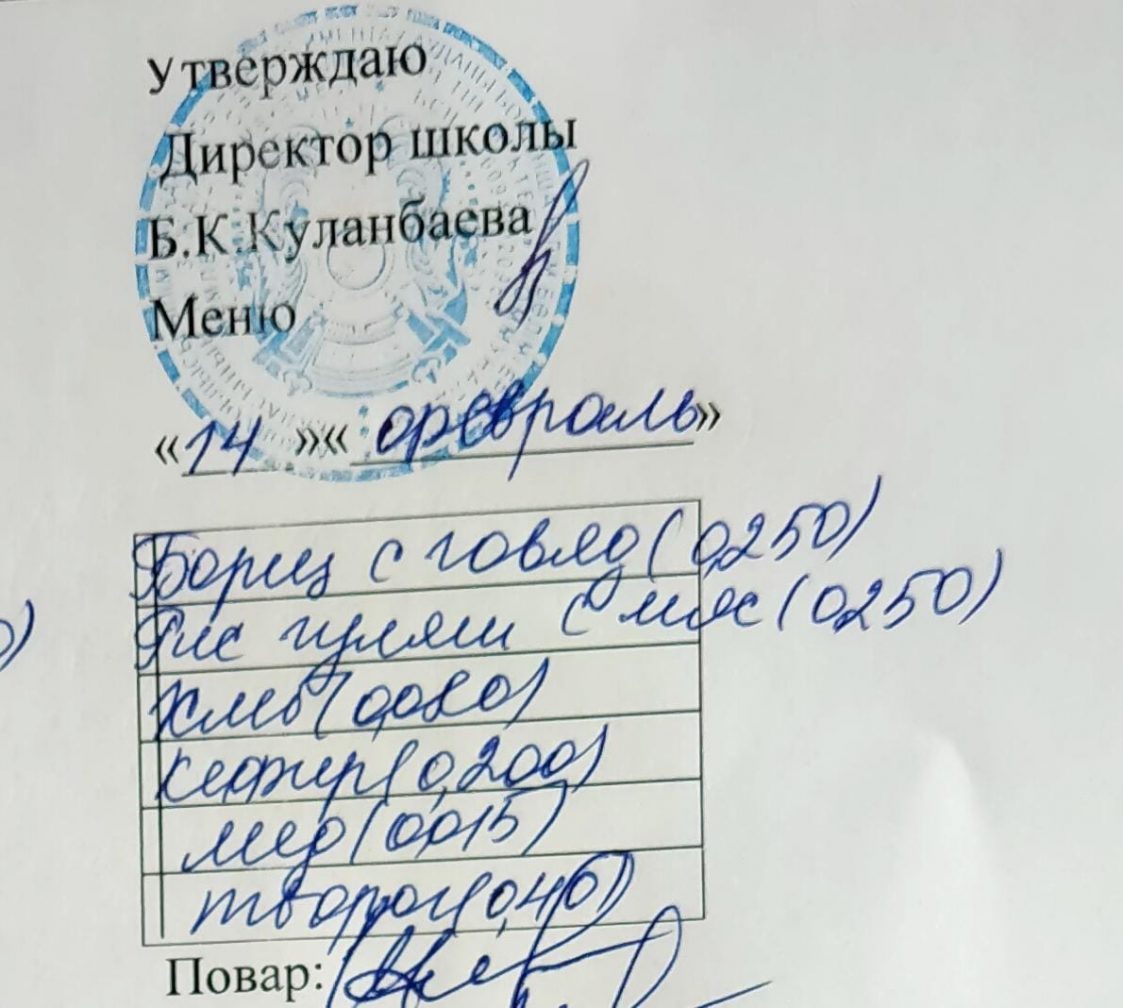 Утверждаю
Директор школы
Б.К.Куланбаева
Меню
«14 »« февраль»
Борщ с говяд (0,250)
Рис гуляш с мяс (0,250)
Хлеб (0,080)
кефир (0,200)
мед (0,015)
творог (0,40)
Повар: